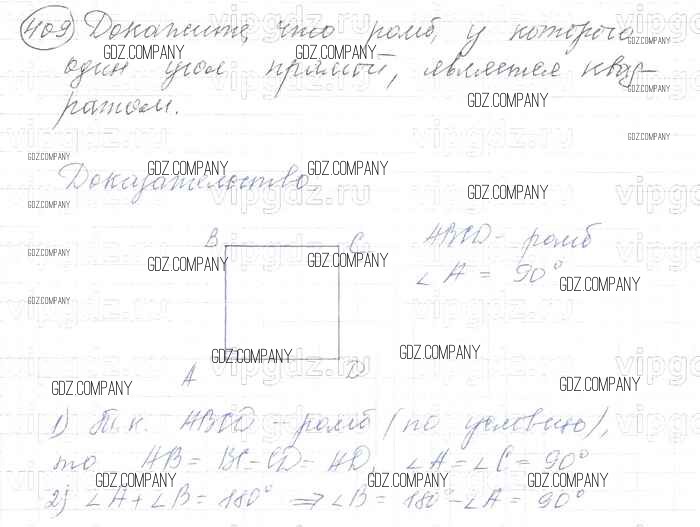 409 Докажите, что ромб, у которого
один угол прямой, является квад-
ратом.
Доказательство.
B C
ABCD - ромб
∠A = 90°
A D
1) Т.к. ABCD - ромб (по условию),
то AB = BC = CD = AD, ∠A = ∠C = 90°
2) ∠A + ∠B = 180° ⇒ ∠B = 180° - ∠A = 90°
GDZ.COMPANY
vipgdz.ru